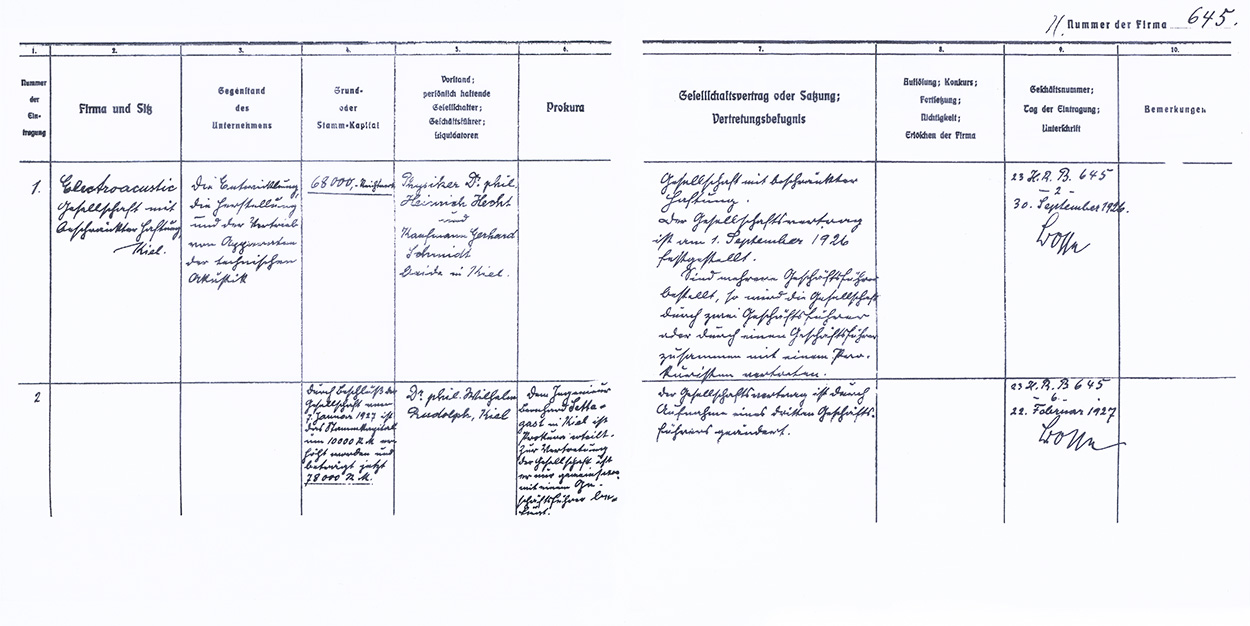 H. Nummer der Firma 645.
1.
2.
3.
4.
5.
6.
7.
8.
9.
10.
Nummer
der
Ein-
tragung
Firma und Sitz
Gegenstand
des
Unternehmens
Grund-
oder
Stamm-Kapital
Vorstand;
persönlich haftende
Gesellschafter;
Geschäftsführer;
Liquidatoren
Prokura
Gesellschaftsvertrag oder Satzung;
Vertretungsbefugnis
Auflösung; Konkurs;
Fortsetzung;
Nichtigkeit;
Erlöschen der Firma
Geschäftsnummer;
Tag der Eintragung;
Unterschrift
Bemerkungen
1.
Electroacustic
Gesellschaft mit
beschränkter Haftung,
Kiel.
Die Entwicklung,
die Herstellung
und der Vertrieb
von Apparaten
der technischen
Akustik
68000,- Reichsmark
Physiker Dr. phil.
Heinrich Hecht
und
Kaufmann Gerhard
Schmidt
beide in Kiel.
Gesellschaft mit beschränkter
Haftung.
Der Gesellschaftsvertrag
ist am 1. September 1926
festgestellt.
Sind mehrere Geschäftsführer
bestellt, so wird die Gesellschaft
durch zwei Geschäftsführer
oder durch einen Geschäftsführer
zusammen mit einem Pro-
kuristen vertreten.
23 H. R. B. 645
- 2 -
30. September 1926.
2
Durch Beschluß der
Gesellschaft vom
Januar 1927 ist
das Stammkapital
um 10000 R.M. er-
höht worden und
beträgt jetzt
78000 R.M.
Dr. phil. Wilhelm
Rudolph, Kiel
Dem Ingenieur
Bernhard Setta-
gast in Kiel ist
Prokura erteilt.
Zur Vertretung
der Gesellschaft ist
er nur gemeinsam
mit einem Ge-
schäftsführer be-
fugt.
Der Gesellschaftsvertrag ist durch
Aufnahme eines dritten Geschäfts-
führers geändert.
23 H. R. B 645
- 6 -
22. Februar 1927